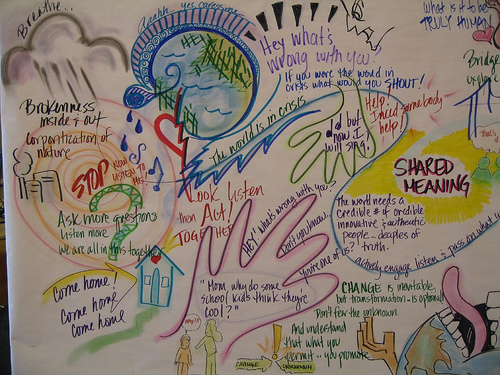 Breathe..
yes
Hey what's
wrong with you?
If you were the world in
crisis what would you SHOUT!
What is it to be
TRULY HUMAN
Bridge
Help.
I need somebody
help!
old but
now I
will sing.
The world is in crisis
Brokenness
inside & out
Corporitization of
nature
STOP NOW
LISTEN TO
US
Look Listen
then Act!
TOGETHER
Ask more questions
listen more
we are all in this together
SHARED
MEANING
The world needs a
credible # of credible
innovative & authentic
people - disciples of
truth.
actively engage, listen & pass on what
HEY! What's wrong with you?
Don't you know.
You're one of us?
"Mom why do some
school kids think they're
cool?"
Come home!
Come home
come home
CHANGE is inevitable,
but transformation is optional
Don't fear the unknown
And understand
that what you
permit.. you promote
CHANGE UNKNOWN